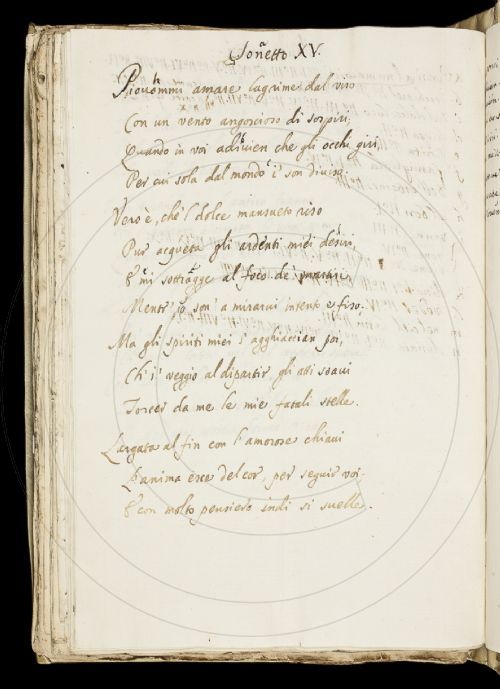 Sonetto XV.
Piovommi amare lagrime dal viso
Con un vento angoscioso di sospiri,
Quando in voi adivien che gli occhi giri,
Per cui sola dal mondo i' son diviso.
Vero è, che 'l dolce mansueto riso
Pur acqueta gli ardenti miei desiri,
E mi sottragge al foco de' martiri,
Mentr' io son' a mirarvi intento e fiso.
Ma gli spiriti miei s' agghiaccian poi,
Ch' i' veggio al dipartir gli atti soavi
Torcer da me le mie fatali stelle.
Largata al fin con l' amorose chiavi
L' anima esce del cor, per seguir voi.
E con molto pensiero indi si svelle.